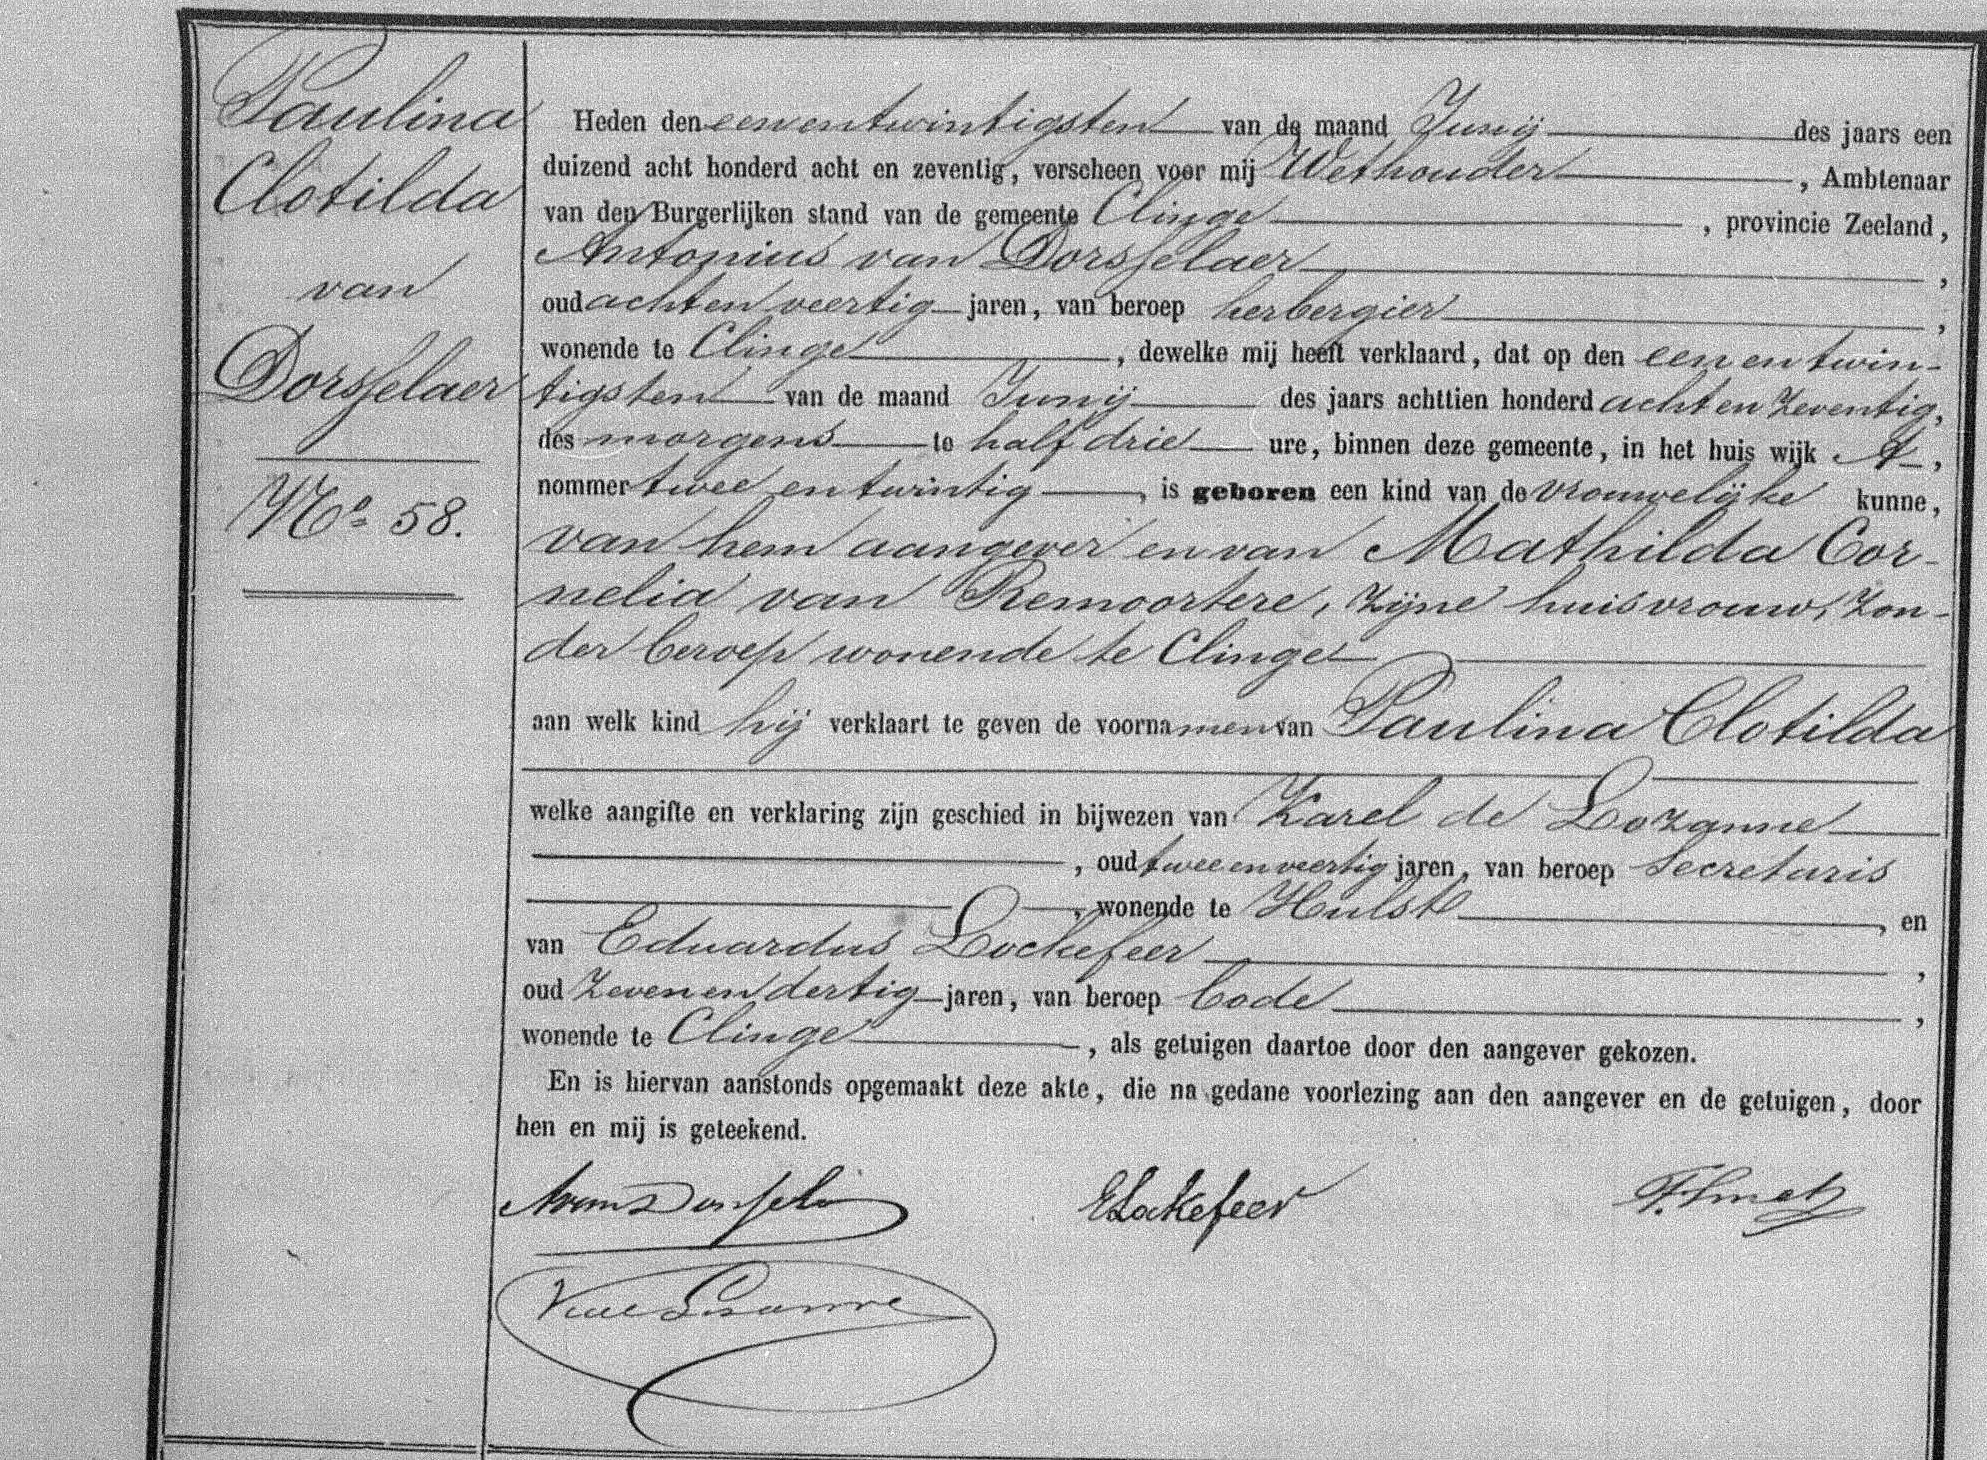 Paulina
Clotilda
van
Dorsselaer
No. 58.
Heden den eenentwintigsten van de maand Junij des jaars een
duizend acht honderd acht en zeventig, verscheen voor mij Wethouder, Ambtenaar
van den Burgerlijken stand van de gemeente Clinge, provincie Zeeland,
Antonius van Dorsselaer,
oud achtenveertig jaren, van beroep herbergier,
wonende te Clinge, dewelke mij heeft verklaard, dat op den een en twin-
tigsten van de maand Junij des jaars achttien honderd acht en zeventig,
des morgens te half drie ure, binnen deze gemeente, in het huis wijk A,
nommer twee en twintig, is geboren een kind van de vrouwelijke kunne,
van hem aangever en van Mathilda Cor-
nelia van Remoortere, zijne huisvrouw, zon-
der beroep wonende te Clinge
aan welk kind hij verklaart te geven de voornamen van Paulina Clotilda
welke aangifte en verklaring zijn geschied in bijwezen van Karel de Lozanne
, oud twee en veertig jaren, van beroep Secretaris
, wonende te Hulst, en
van Eduardus Lockefeer,
oud zeven en dertig jaren, van beroep bode,
wonende te Clinge, als getuigen daartoe door den aangever gekozen.
En is hiervan aanstonds opgemaakt deze akte, die na gedane voorlezing aan den aangever en de getuigen, door
hen en mij is geteekend.
ELockefeer